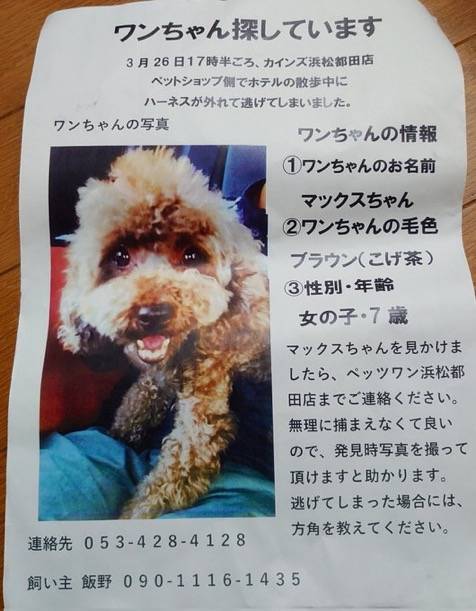 ワンちゃん探しています
3月26日17時半ごろ、カインズ浜松都田店
ペットショップ側でホテルの散歩中に
ハーネスが外れて逃げてしまいました。
ワンちゃんの写真
ワンちゃんの情報
①ワンちゃんのお名前
マックスちゃん
②ワンちゃんの毛色
ブラウン(こげ茶)
③性別・年齢
女の子・7歳
マックスちゃんを見かけま
したら、ペッツワン浜松都
田店までご連絡ください。
無理に捕まえなくて良い
ので、発見時写真を撮って
頂けますと助かります。
逃げてしまった場合には、
方角を教えてください。
連絡先 053-428-4128
飼い主 飯野 090-1116-1435